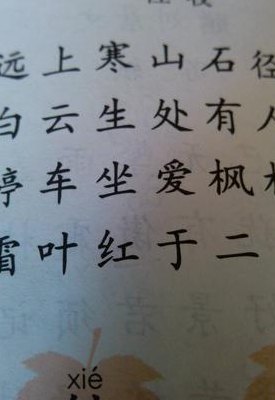 远上寒山石径
白云生处有人
停车坐爱枫林
霜叶红于二
xié